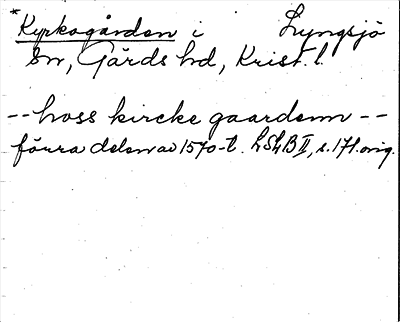 *Kyrkogården i Lyngsjö
sn, Gärds hd, Krist. l.
-- hoss kircke gaardenn --
förra delen av 1570-t. LShB II, s. 171. orig.